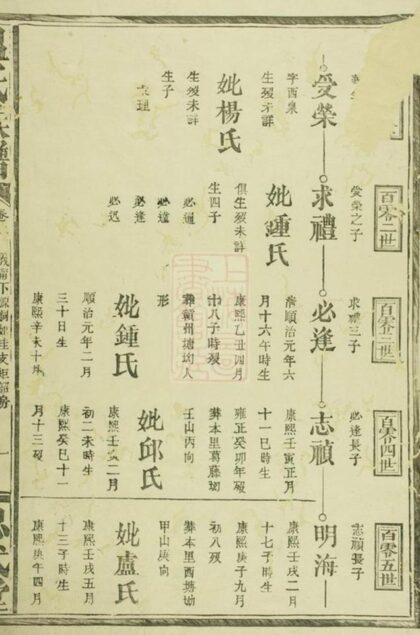 受榮
字酉泉
生歿未詳
妣楊氏
生歿未詳
生子
百零二世
愛榮之子
求禮
妣鍾氏
俱生歿未詳
生四子
必通
必逢
必迅
百零三世
求禮三子
必逢
清順治元年六
月十六午時生
康熙乙丑四月
十八子時歿
葬贛州塘坳人
形
妣鍾氏
順治元年二月
三十日生
康熙辛未十月
百零四世
必逢長子
志禎
康熙壬寅正月
十一巳時生
雍正癸卯年歿
葬本里葛藤坳
壬山丙向
妣邱氏
康熙壬寅二月
初二未時生
康熙癸巳十一
月十三歿
百零五世
志禎長子
明海
康熙壬戌二月
十七子時生
康熙庚子九月
初八歿
葬本里西塘坳
甲山庚向
妣盧氏
康熙壬戌五月
十三子時生
康熙庚午四月